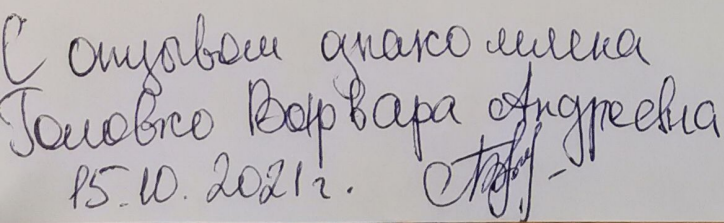 С отзывом ознакомлена
Головко Варвара Андреевна
15.10.2021г.